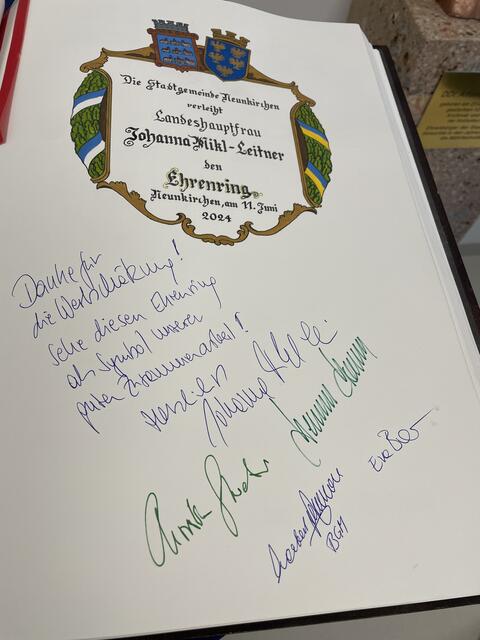 Die Stadtgemeinde Neunkirchen
verleiht
Landeshauptfrau
Johanna Mikl-Leitner
den
Ehrenring
Neunkirchen, am 11. Juni
2024
Danke für
die Wertschätzung!
Sehe diesen Ehrenring
als Symbol unserer
guten Zusammenarbeit!
Herzlichst
Johanna
Eva
BGM